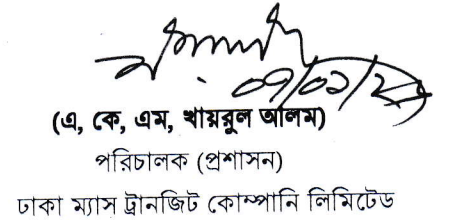 (এ, কে, এম, খায়রুল আলম)
পরিচালক (প্রশাসন)
ঢাকা ম্যাস ট্রানজিট কোম্পানি লিমিটেড